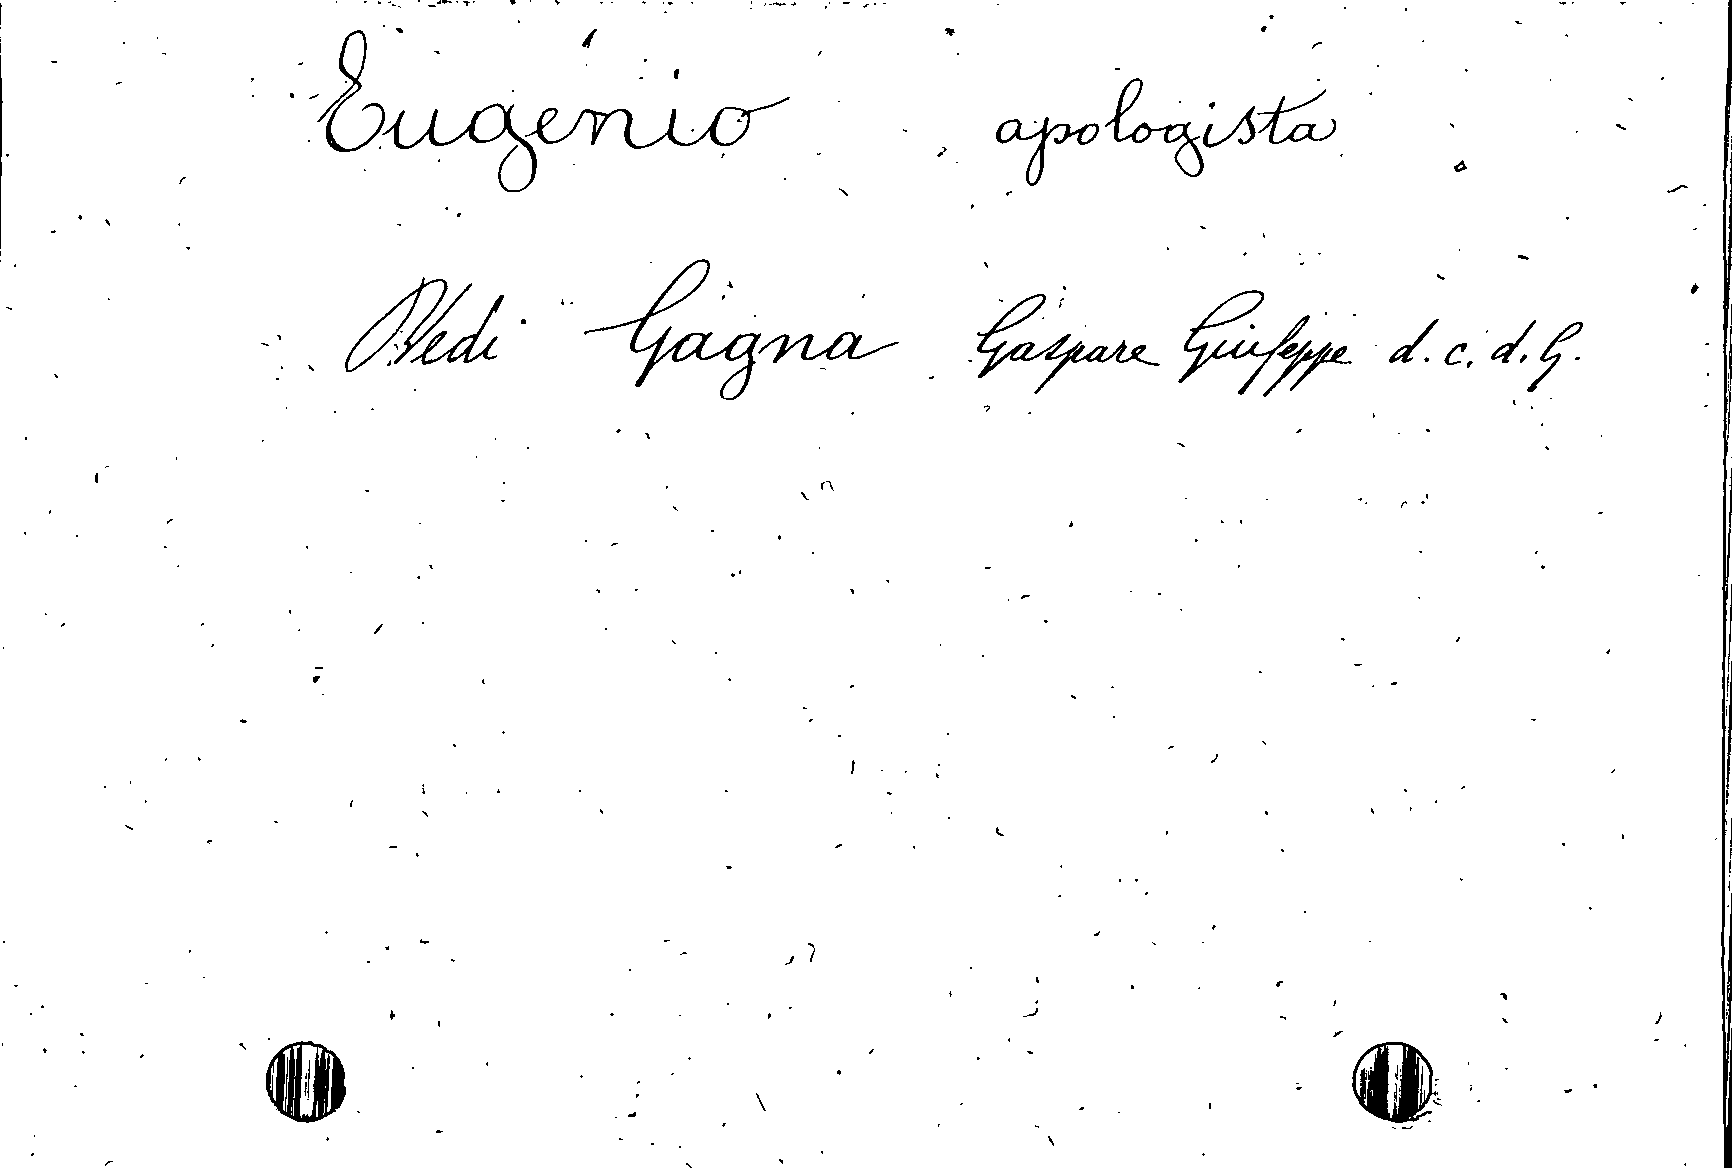 Eugenio apologista
Vedi Gagna Gaspare Giuseppe d. c. d. G.